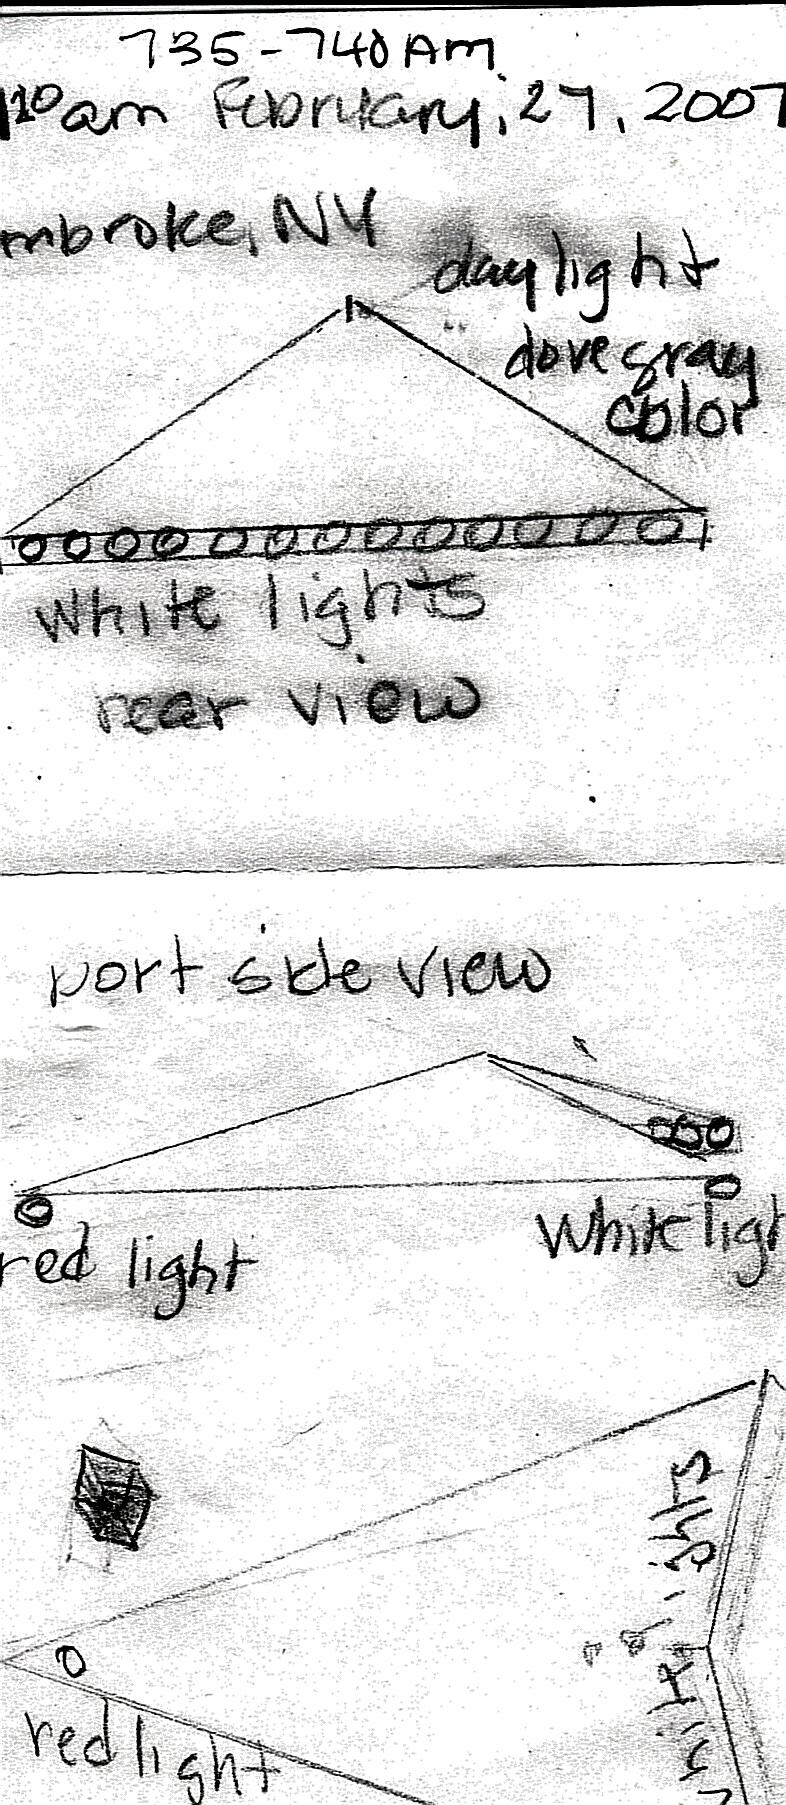 735-740 AM
10 am February, 27, 2007
mbroke, NY
daylight
dove gray
color
white lights
rear view
port side view
red light
white ligh
red light
lights